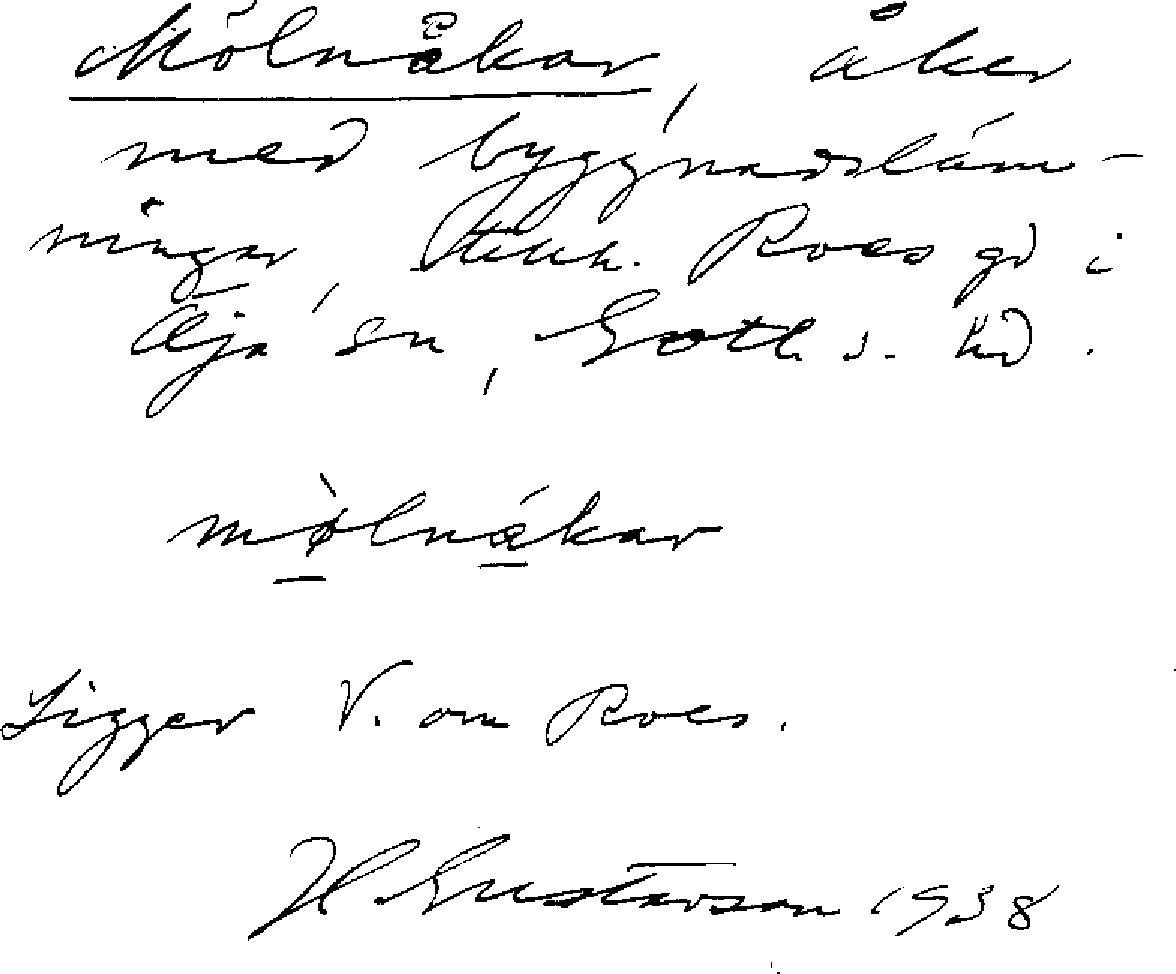 Mölnåkar, åker
med byggnadsläm-
ningar, tillh. Roes gd i
Öja sn, Gotl. s. hd.
mø̀lnákar
Ligger V. om Roes.
H Gustavson 1938